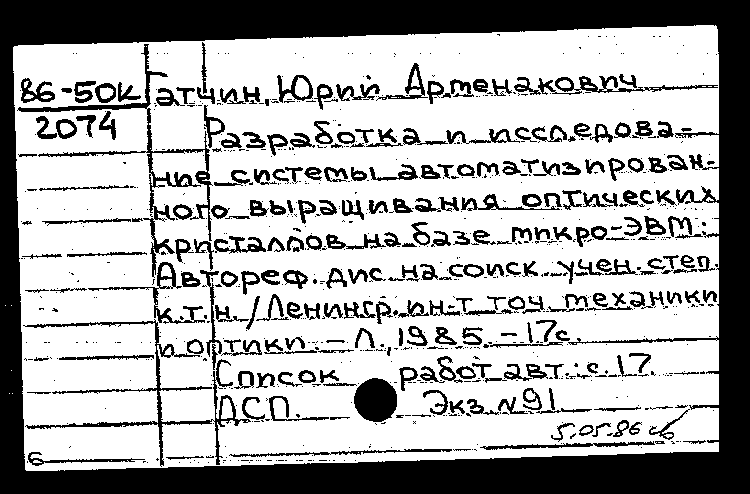 86-50к Гатчин, Юрий Арменакович
2074 Разработка и исследова-
ние системы автоматизирован-
ного выращивания оптических
кристаллов на базе микро-ЭВМ:
Автореф. дис. на соиск. учен. степ.
к.т.н. /Ленингр. ин-т точ. механики
и оптики. – Л., 1985. – 17с.
Список работ авт.: с. 17.
ДСП. Экз. N 91.
5.05.86
6